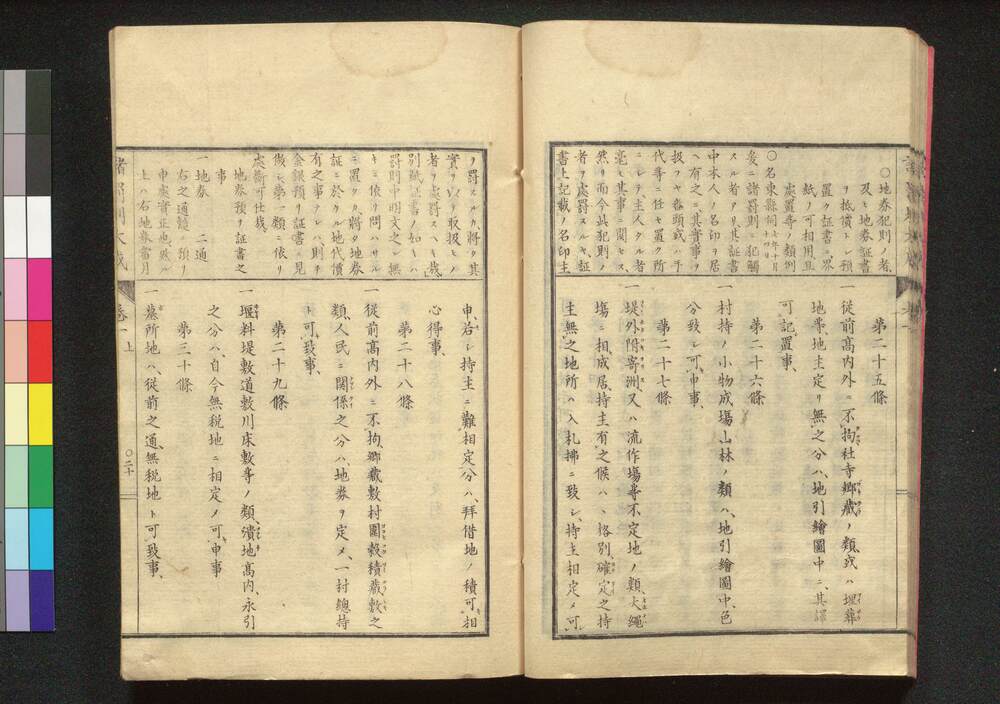 ○地券犯則ノ者
及ヒ地券証書
ヲ抵償トシ預
置ク証書ハ界
紙ノ可相用且
炭置等ノ類例
○名東縣伺七年十月
後ニ諸罰則ニ犯觸
スル者アリ其証書
中本人ノ名印ヲ居
ヘ有之ニ其實事ヲ
扱フヤ番頭或ハ手
代等ニ任セ置ク所
ニシテ主人タル者
毫モ其事ニ関セス
然リ而今此犯則ノ
者ヲ處罰スルヤ証
書上記載ノ名印主
第二十五條
一從前高内外ニ不拘社寺郷藏ノ類或ハ埋葬
地等地主定リ無之分ハ地引繪圖中ニ其譯
可記置事
第二十六條
一村持ノ小物成場山林ノ類ハ地引繪圖中色
分致シ可申事
第二十七條
一堤外附寄洲又ハ流作場等不定地ノ類大繩
場ニ相成居持主有之候ハヽ格別確定之持
主無之地所ハ入札拂ニ致シ持主相定メ可
ヲ罰スルカ將タ其
實ヲ以テ取扱ヒノ
者ヲ處罰スヘキ哉
別紙証書ノ如キハ
罰則中明文之レ無
キニ依リ問ハサル
ニ置クカ將タ地券
証ニ於ケル地代價
有之事ナレハ則チ
金銀預リ証書ニ見
做シ第一類ニ依リ
處斷可仕哉
地券預リ証書之
事
一地券 二通
右之通慥ニ預リ
申處實正也然ル
上ハ右地券當月
申若シ持主ニ難相定分ハ拜借地ノ積可相
心得事
第二十八條
一從前高内外ニ不拘郷藏敷村圍穀積藏敷之
類人民ニ関係之分ハ地券ヲ定メ一村總持
ト可致事
第二十九條
一堰料堤敷道敷川床敷等ノ類潰地高内永引
之分ハ自今無税地ニ相定メ可申事
第三十條
一墓所地ハ從前之通無税地ト可致事
諸罰則大成
卷一
上
○二十